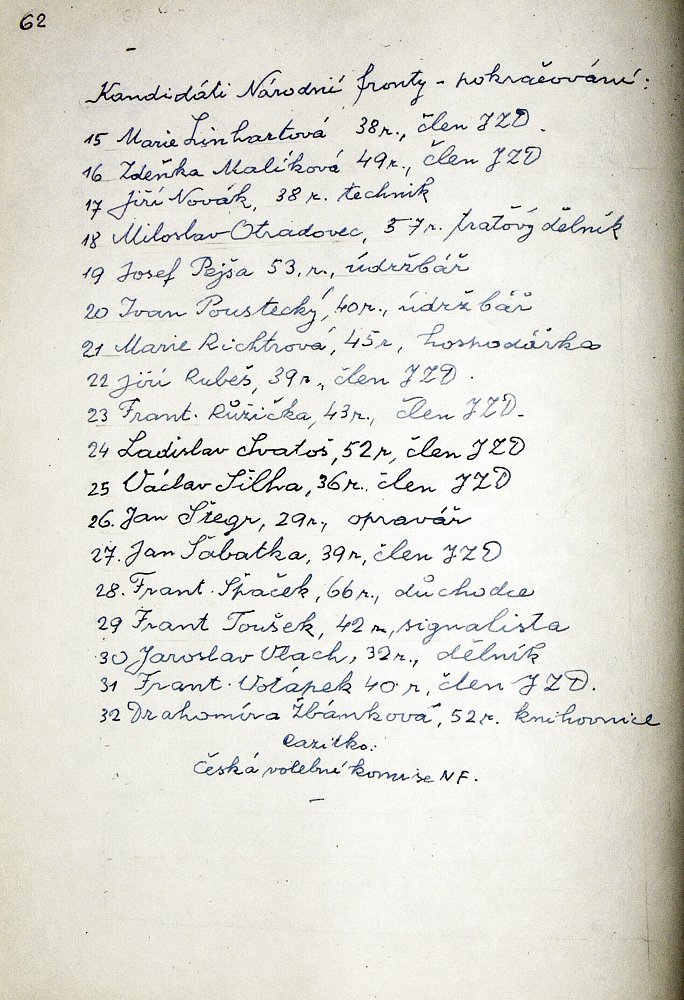 62
Kandidáti Národní fronty - pokračování:
15 Marie Linhartová 38r., člen JZD.
16 Zdeňka Malíková 49r., člen JZD
17 Jiří Novák, 38 r. technik
18 Miloslav Otradovec, 57r. traťový dělník
19 Josef Pejša 53.r., údržbář
20 Ivan Poustecký, 40r., údržbář
21 Marie Richtrová, 45r, hospodářka
22 Jiří Rubeš, 39r., člen JZD.
23 Frant. Růžička, 43r., člen JZD.
24 Ladislav Svatoš, 52r, člen JZD
25 Václav Šilha, 36r. člen JZD
26. Jan Štegr, 29r., opravář
27. Jan Šabatka, 39r, člen JZD
28. Frant. Špaček, 66r., důchodce
29 Frant Toušek, 42r., signalista
30 Jaroslav Vlach, 32r., dělník
31 Frant. Votápek 40r, člen JZD.
32 Drahomíra Žbánková, 52r. knihovnice
razítko:
česká volební komise NF.